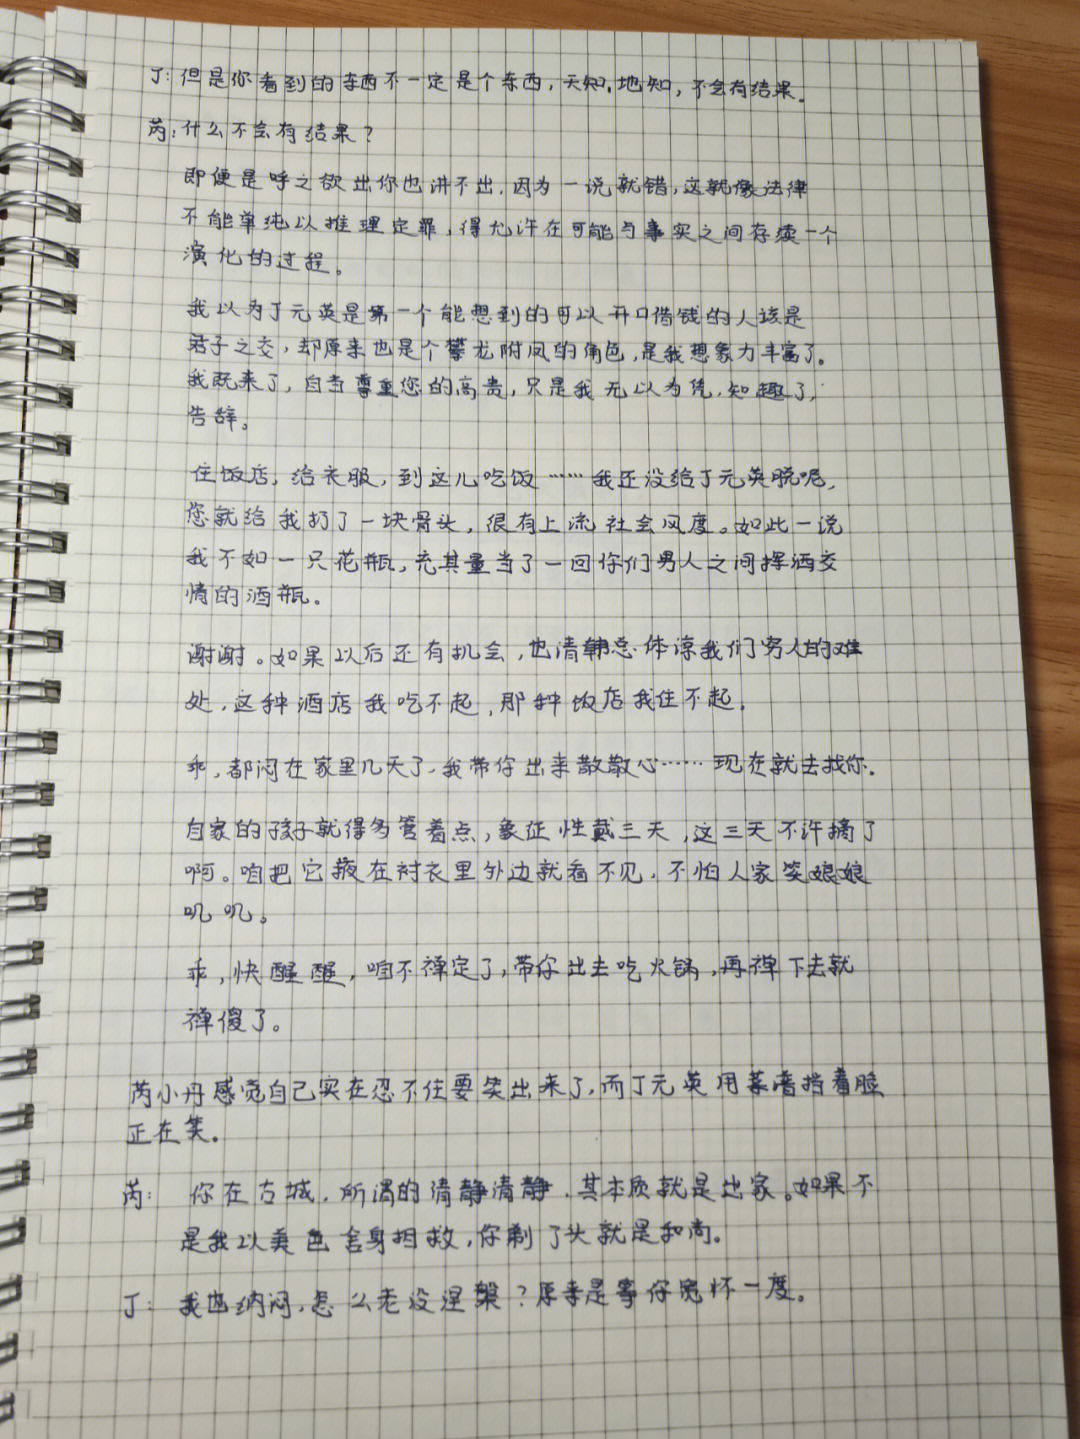 丁：但是你看到的东西不一定是个东西，天知，地知，不会有结果。
芮：什么不会有结果？
即便是呼之欲出你也讲不出，因为一说就错，这就像法律
不能单纯以推理定罪，得允许在可能与事实之间存续一个
演化的过程。
我以为丁元英是第一个能想到的可以开口借钱的人该是
君子之交，却原来也是个攀龙附凤的角色，是我想象力丰富了。
我既来了，自当尊重您的高贵，只是我无以为凭，知趣了，
告辞。
住饭店，给衣服，到这儿吃饭……我还没给丁元英脱呢，
您就给我扔了一块骨头，很有上流社会风度。如此一说
我不如一只花瓶，充其量当了一回你们男人之间挥洒交
情的酒瓶。
谢谢。如果以后还有机会，也请韩总体谅我们穷人的难
处，这种酒店我吃不起，那种饭店我住不起。
乖，都闷在家里几天了，我带你出来散散心……现在就去找你。
自家的孩子就得多管着点，象征性戴三天，这三天不许摘了
啊。咱把它掖在衬衣里外边就看不见，不怕人家笑娘娘
叽叽。
乖，快醒醒，咱不禅定了，带你出去吃火锅，再禅下去就
禅傻了。
芮小丹感觉自己实在忍不住要笑出来了，而丁元英用菜谱挡着脸
正在笑。
芮： 你在古城，所谓的清静清静，其本质就是出家。如果不
是我以美色舍身相救，你剃了头就是和尚。
丁： 我也纳闷，怎么老没涅槃？原来是等你宽怀一度。